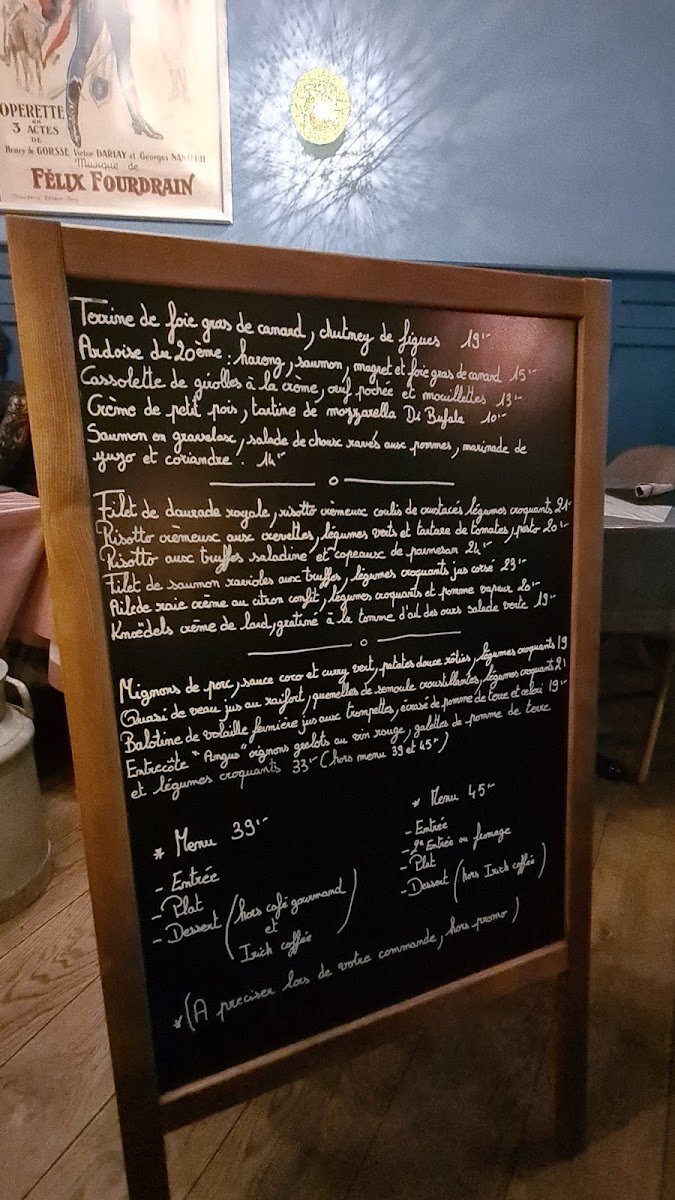 OPERETTE
en
3 ACTES
DE
Henry de GORSSE, Victor DARLAY et Georges NANTEUIL
Musique de
FÉLIX FOURDRAIN
Terrine de foie gras de canard, chutney de figues 19.-
Ardoise du 20ème : hareng, saumon, magret et foie gras de canard 15.-
Cassolette de girolles à la crème, œuf pochée et mouillettes 13.-
Crème de petit pois, tartine de mozzarella Di Bufala 10.-
Saumon en gravelax, salade de choux raves aux pommes, marinade de
yuzo et coriandre. 14.-
Filet de daurade royale, risotto crèmeux coulis de crustacés légumes croquants 21.-
Risotto crèmeux aux crevettes, légumes verts et tartare de tomates, pesto 20.-
Risotto aux truffes saladine et copeaux de parmesan 21.-
Filet de saumon ravioles aux truffes, légumes croquants jus corsé 23.-
Aile de raie crème au citron confit, légumes croquants et pomme vapeur 20.-
Knoëdels crème de lard, gratiné à la tomme d'ail des ours salade verte 19.-
Mignons de porc, sauce coco et curry vert, patates douce rôties, légumes croquants 19
Quasi de veau jus au raifort, quenelles de semoule croustillantes, légumes croquants 21
Balotine de volaille fermière jus aux trompettes, écrasé de pomme de terre et céleri 19.-
Entrecôte "Angus" oignons grelots au vin rouge, galettes de pomme de terre
et légumes croquants 33.- (hors menu 39 et 45.-)
* Menu 39.-
- Entrée
- Plat
- Dessert (hors café gourmand
et
Irich coffée)
* Menu 45.-
- Entrée
- 2e Entrée ou fromage
- Plat
- Dessert (hors Irich coffée)
* (A preciser lors de votre commande, hors promo)